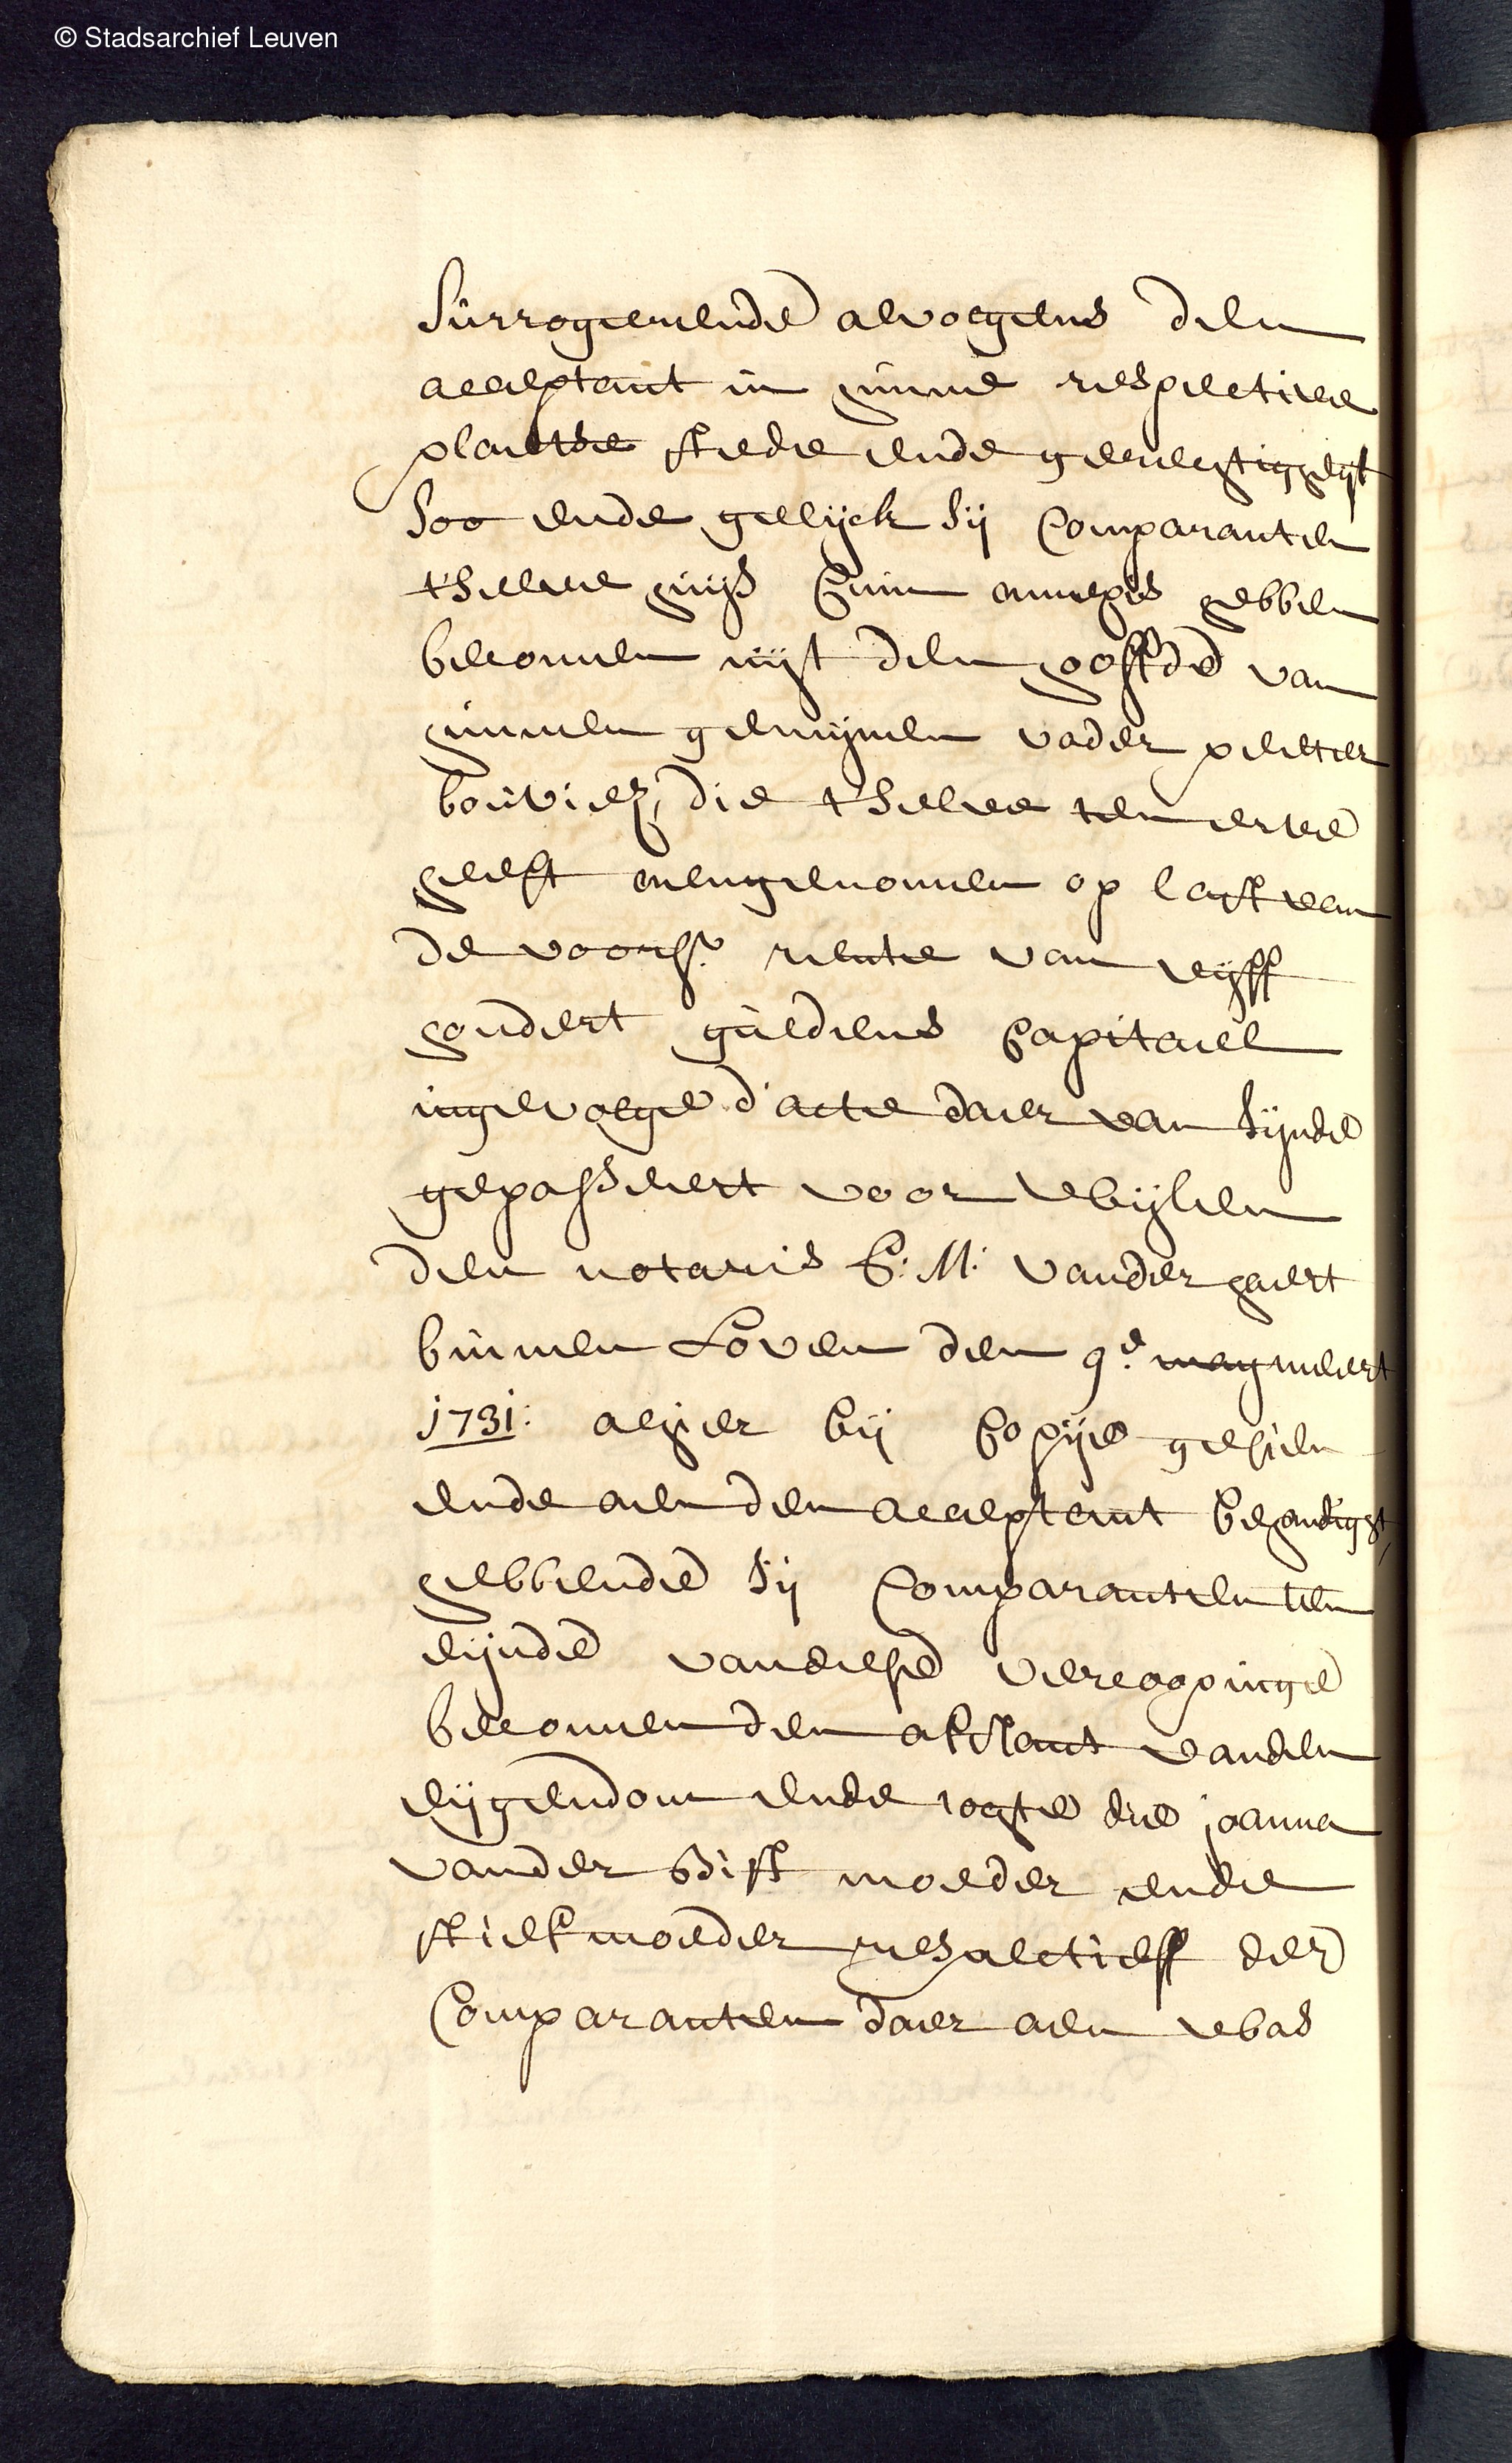 © Stadsarchief Leuven
surrogerende alvolgens den
acceptant in hunne respective
plaetse stede ende gerechtigheyt
soo ende gelijck sij comparanten
t'selve huijs cum annexis hebben
becomen uijt den hoofde van
hunnen gemijnen vader peeter
bouvier, die t'selve ten erve
heeft aengenomen op last van
de voors. rente van vijff
hondert guldens capitael
ingevolge d'acte daer van sijnde
gepasseert voor wijlen
den notaris C: M: vander haert
binnen Loven den 9e. meert
1731: alhier bij copije gesien
ende aen den acceptant behandight,
hebbende sij comparanten ten
eijnde van dese vercoopinge
becomen den afstant vanden
eijgendom ende tochte die joanna
vander Bist moeder ende
stiefmoeder respectieff der
comparanten daer aen was